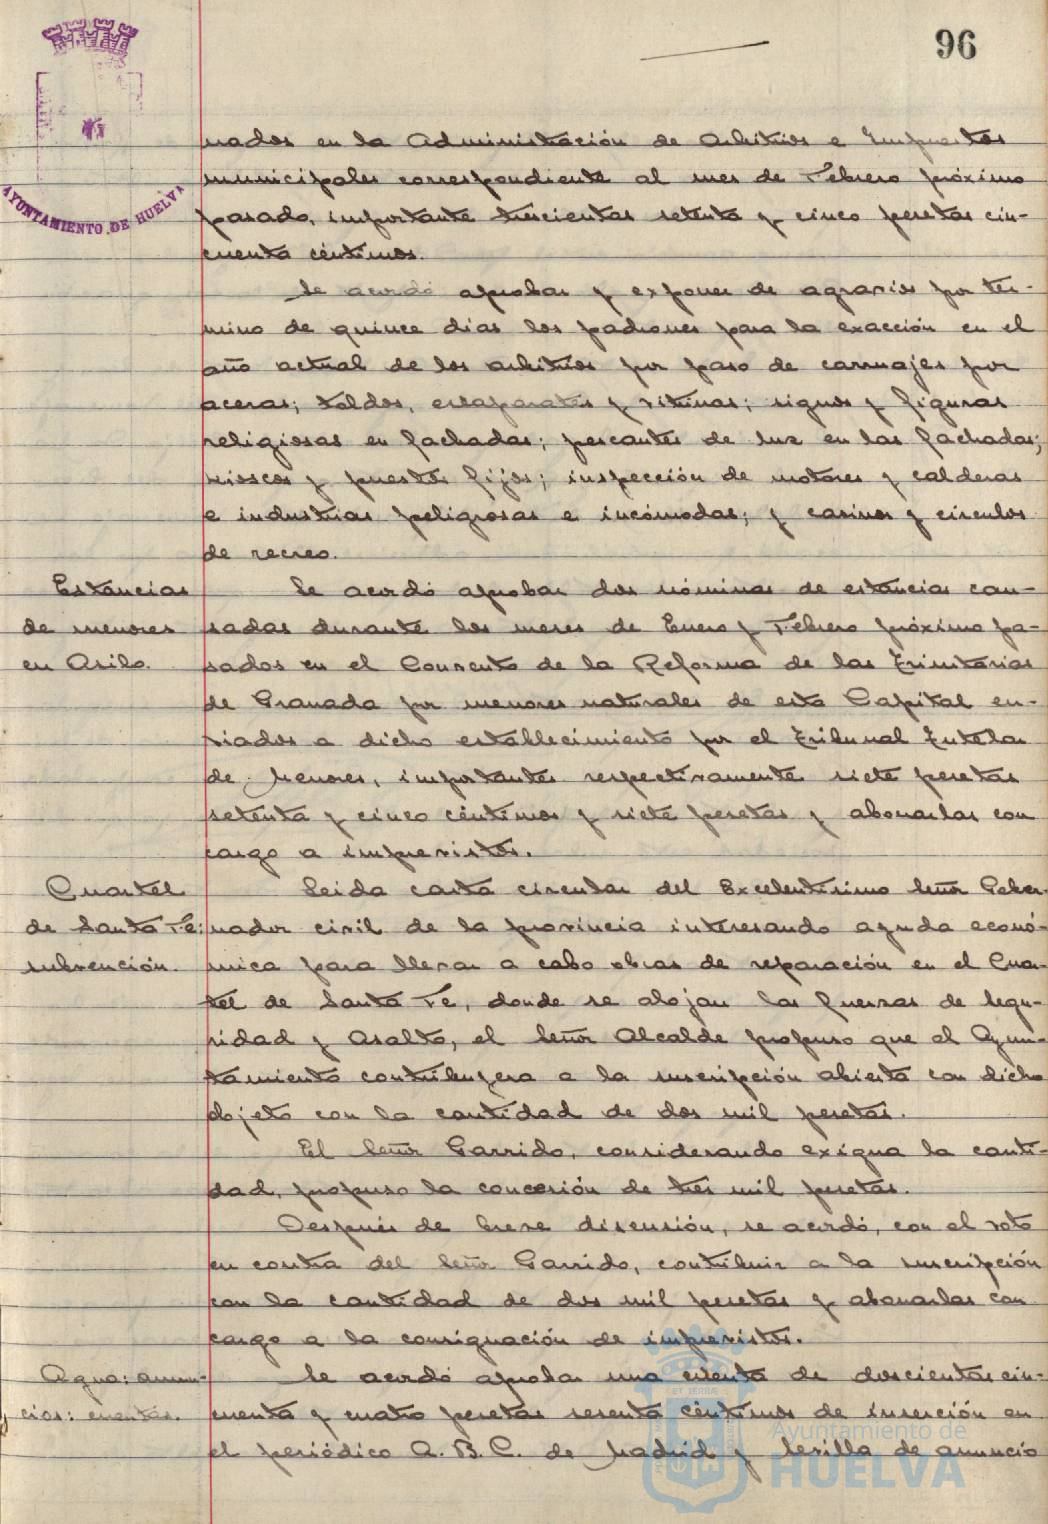 96
AYUNTAMIENTO DE HUELVA
nados en la Administración de Arbitrios e Impuestos
municipales correspondiente al mes de Febrero próximo
pasado, importante trescientas setenta y cinco pesetas cin-
cuenta céntimos.
Se acordó aprobar y exponer de agravios por tér-
mino de quince dias los padrones para la exacción en el
año actual de los arbitrios por paso de carruajes por
aceras; toldos, escaparates y vitrinas; signos y figuras
religiosas en fachadas; pescantes de luz en las fachadas;
kioscos y puestos fijos; inspección de motores y calderas
e industrias peligrosas e incómodas; y casinos y circulos
de recreo.
Estancias
de menores
en Asilo.
Se acordó aprobar dos nóminas de estancias cau-
sadas durante los meses de Enero y Febrero próximo pa-
sados en el Convento de la Reforma de las Trinitarias
de Granada por menores naturales de esta Capital en-
viados a dicho establecimiento por el Tribunal Tutelar
de Menores, importantes respectivamente siete pesetas
setenta y cinco céntimos y siete pesetas y abonarlas con
cargo a imprevistos.
Cuartel
de Santa Fe:
subvención.
Leida carta circular del Excelentísimo Señor Gober-
nador civil de la provincia interesando ayuda econó-
mica para llevar a cabo obras de reparación en el Cuar-
tel de Santa Fe, donde se alojan las fuerzas de Segu-
ridad y Asalto, el Señor Alcalde propuso que el Ayun-
tamiento contribuyera a la suscripción abierta con dicho
objeto con la cantidad de dos mil pesetas.
El Señor Garrido, considerando exigua la canti-
dad, propuso la concesión de tres mil pesetas.
Después de breve discusión, se acordó, con el voto
en contra del Señor Garrido, contribuir a la suscripción
con la cantidad de dos mil pesetas y abonarlas con
cargo a la consignación de imprevistos.
Agua: anun-
cios: cuentas.
Se acordó aprobar una cuenta de doscientas cin-
cuenta y cuatro pesetas sesenta céntimos de inserción en
el periódico A. B. C. de Madrid y Sevilla de anuncio
Ayuntamiento de
HUELVA